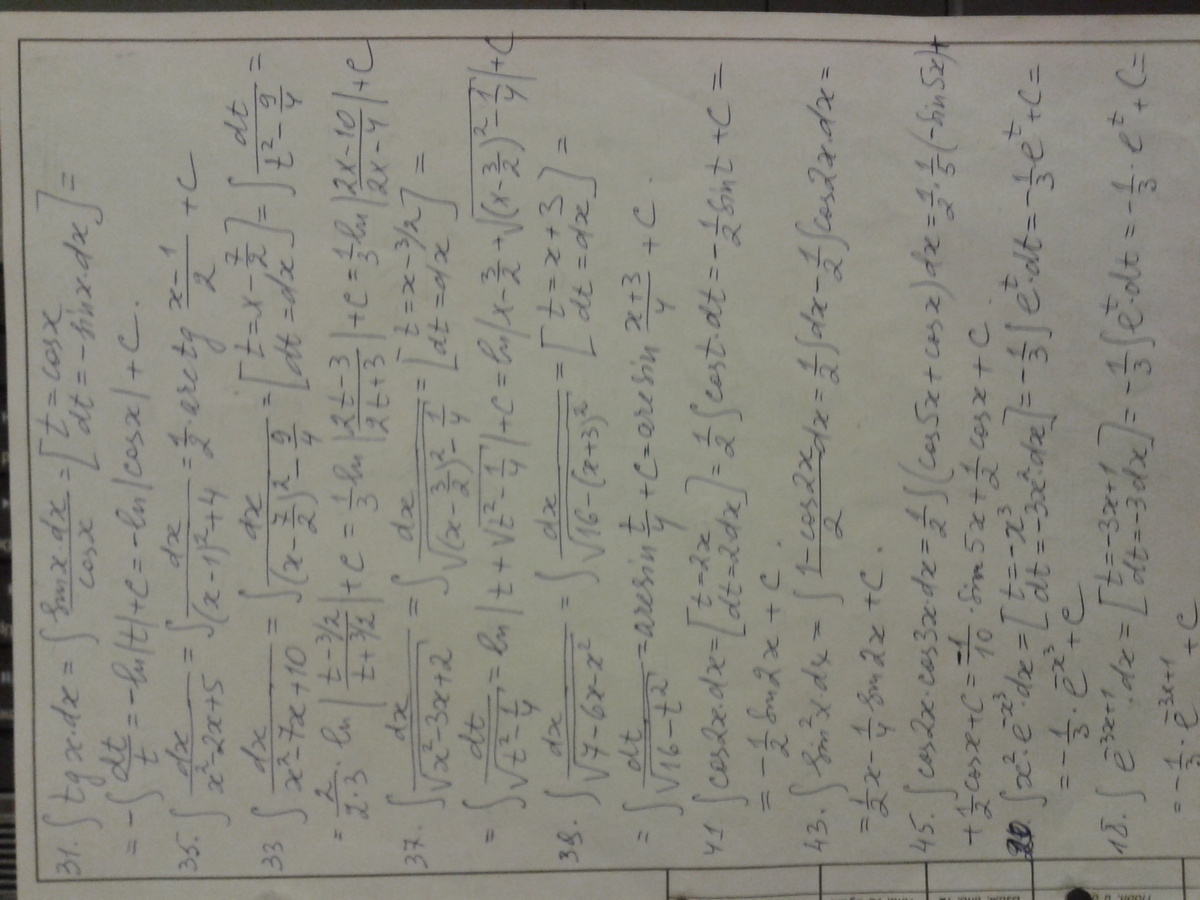 31. ∫ tg x·dx = ∫ sin x·dx / cos x = [t = cos x; dt = -sin x·dx] =
= -∫ dt/t = -ln|t| + C = -ln|cos x| + C.
35. ∫ dx/(x²-2x+5) = ∫ dx/((x-1)²+4) = 1/2·arctg (x-1)/2 + C
33 ∫ dx/(x²-7x+10) = ∫ dx/((x-7/2)²-9/4) = [t = x-7/2; dt = dx] = ∫ dt/(t²-9/4) =
= 2/(2·3)·ln|(t-3/2)/(t+3/2)| + C = 1/3 ln|(2t-3)/(2t+3)| + C = 1/3 ln|(2x-10)/(2x-4)| + C
37. ∫ dx/√(x²-3x+2) = ∫ dx/√((x-3/2)²-1/4) = [t = x-3/2; dt = dx] =
= ∫ dt/√(t²-1/4) = ln|t+√(t²-1/4)| + C = ln|x-3/2+√((x-3/2)²-1/4)| + C
39. ∫ dx/√(7-6x-x²) = ∫ dx/√(16-(x+3)²) = [t = x+3; dt = dx] =
= ∫ dt/√(16-t²) = arcsin t/4 + C = arcsin (x+3)/4 + C.
41. ∫ cos2x·dx = [t = 2x; dt = 2dx] = 1/2 ∫ cos t·dt = -1/2 sin t + C =
= -1/2 sin2x + C.
43. ∫ sin²x·dx = ∫ (1-cos2x)/2 dx = 1/2 ∫ dx - 1/2 ∫ cos2x·dx =
= 1/2 x - 1/4 sin2x + C.
45. ∫ cos2x·cos3x dx = 1/2 ∫ (cos5x + cos x) dx = 1/2·1/5 (-sin5x) +
+ 1/2 cos x + C = -1/10·sin5x + 1/2 cos x + C.
20. ∫ x²·e^(-x³)·dx = [t = -x³; dt = -3x²dx] = -1/3 ∫ e^t·dt = -1/3 e^t + C =
= -1/3·e^(-x³) + C
18. ∫ e^(-3x+1)·dx = [t = -3x+1; dt = -3dx] = -1/3 ∫ e^t·dt = -1/3·e^t + C =
= -1/3·e^(-3x+1) + C